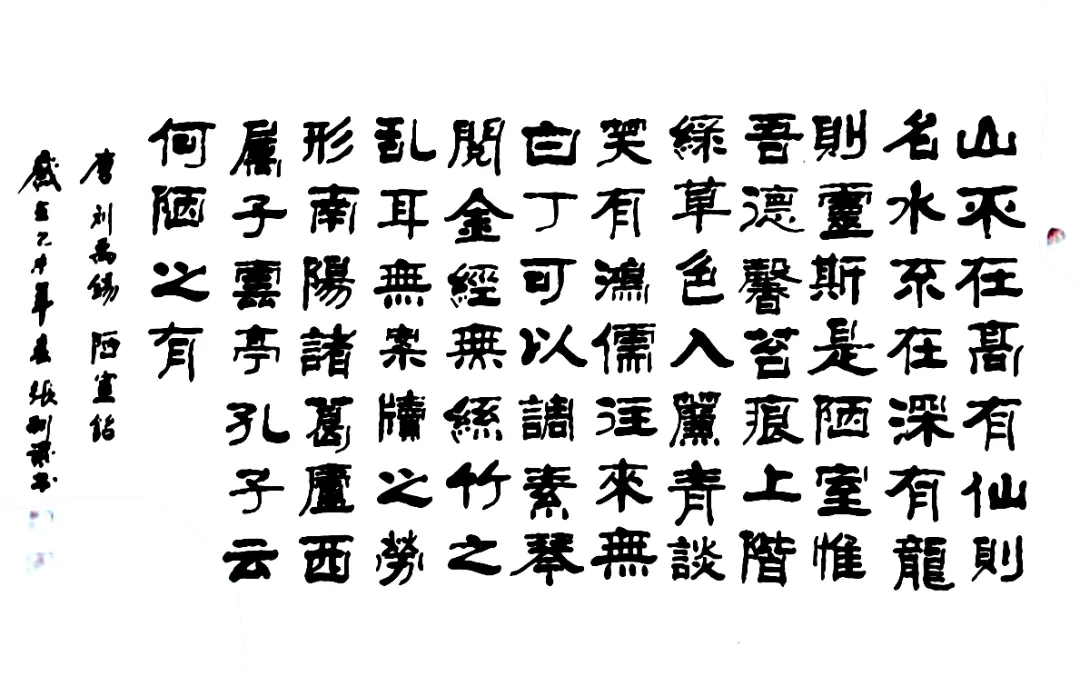 山不在髙有仙則
名水不在深有龍
則靈斯是陋室惟
吾德馨苔痕上階
綠草色入簾青談
笑有鴻儒往來無
白丁可以調素琴
閱金經無絲竹之
乱耳無案牘之勞
形南陽諸葛廬西
屬子雲亭孔子云
何陋之有
唐刘禹锡 陋室铭
歲在乙未年春張